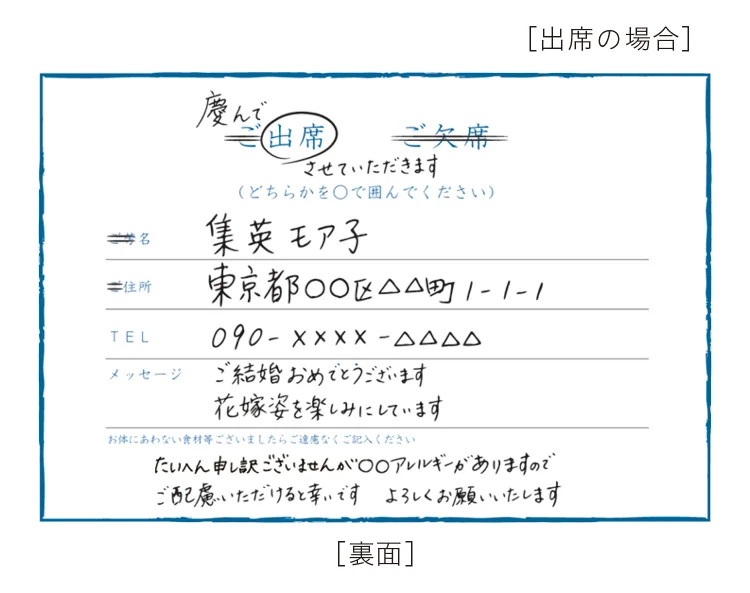 [出席の場合]
慶んで
ご出席 ご欠席
させていただきます
(どちらかを○で囲んでください)
ご芳名 集英モア子
ご住所 東京都○○区△△町1-1-1
TEL 090-××××-△△△△
メッセージ ご結婚おめでとうございます
花嫁姿を楽しみにしています
お体にあわない食材等ございましたらご遠慮なくご記入ください
たいへん申し訳ございませんが○○アレルギーがありますので
ご配慮いただけると幸いです よろしくお願いいたします
[裏面]